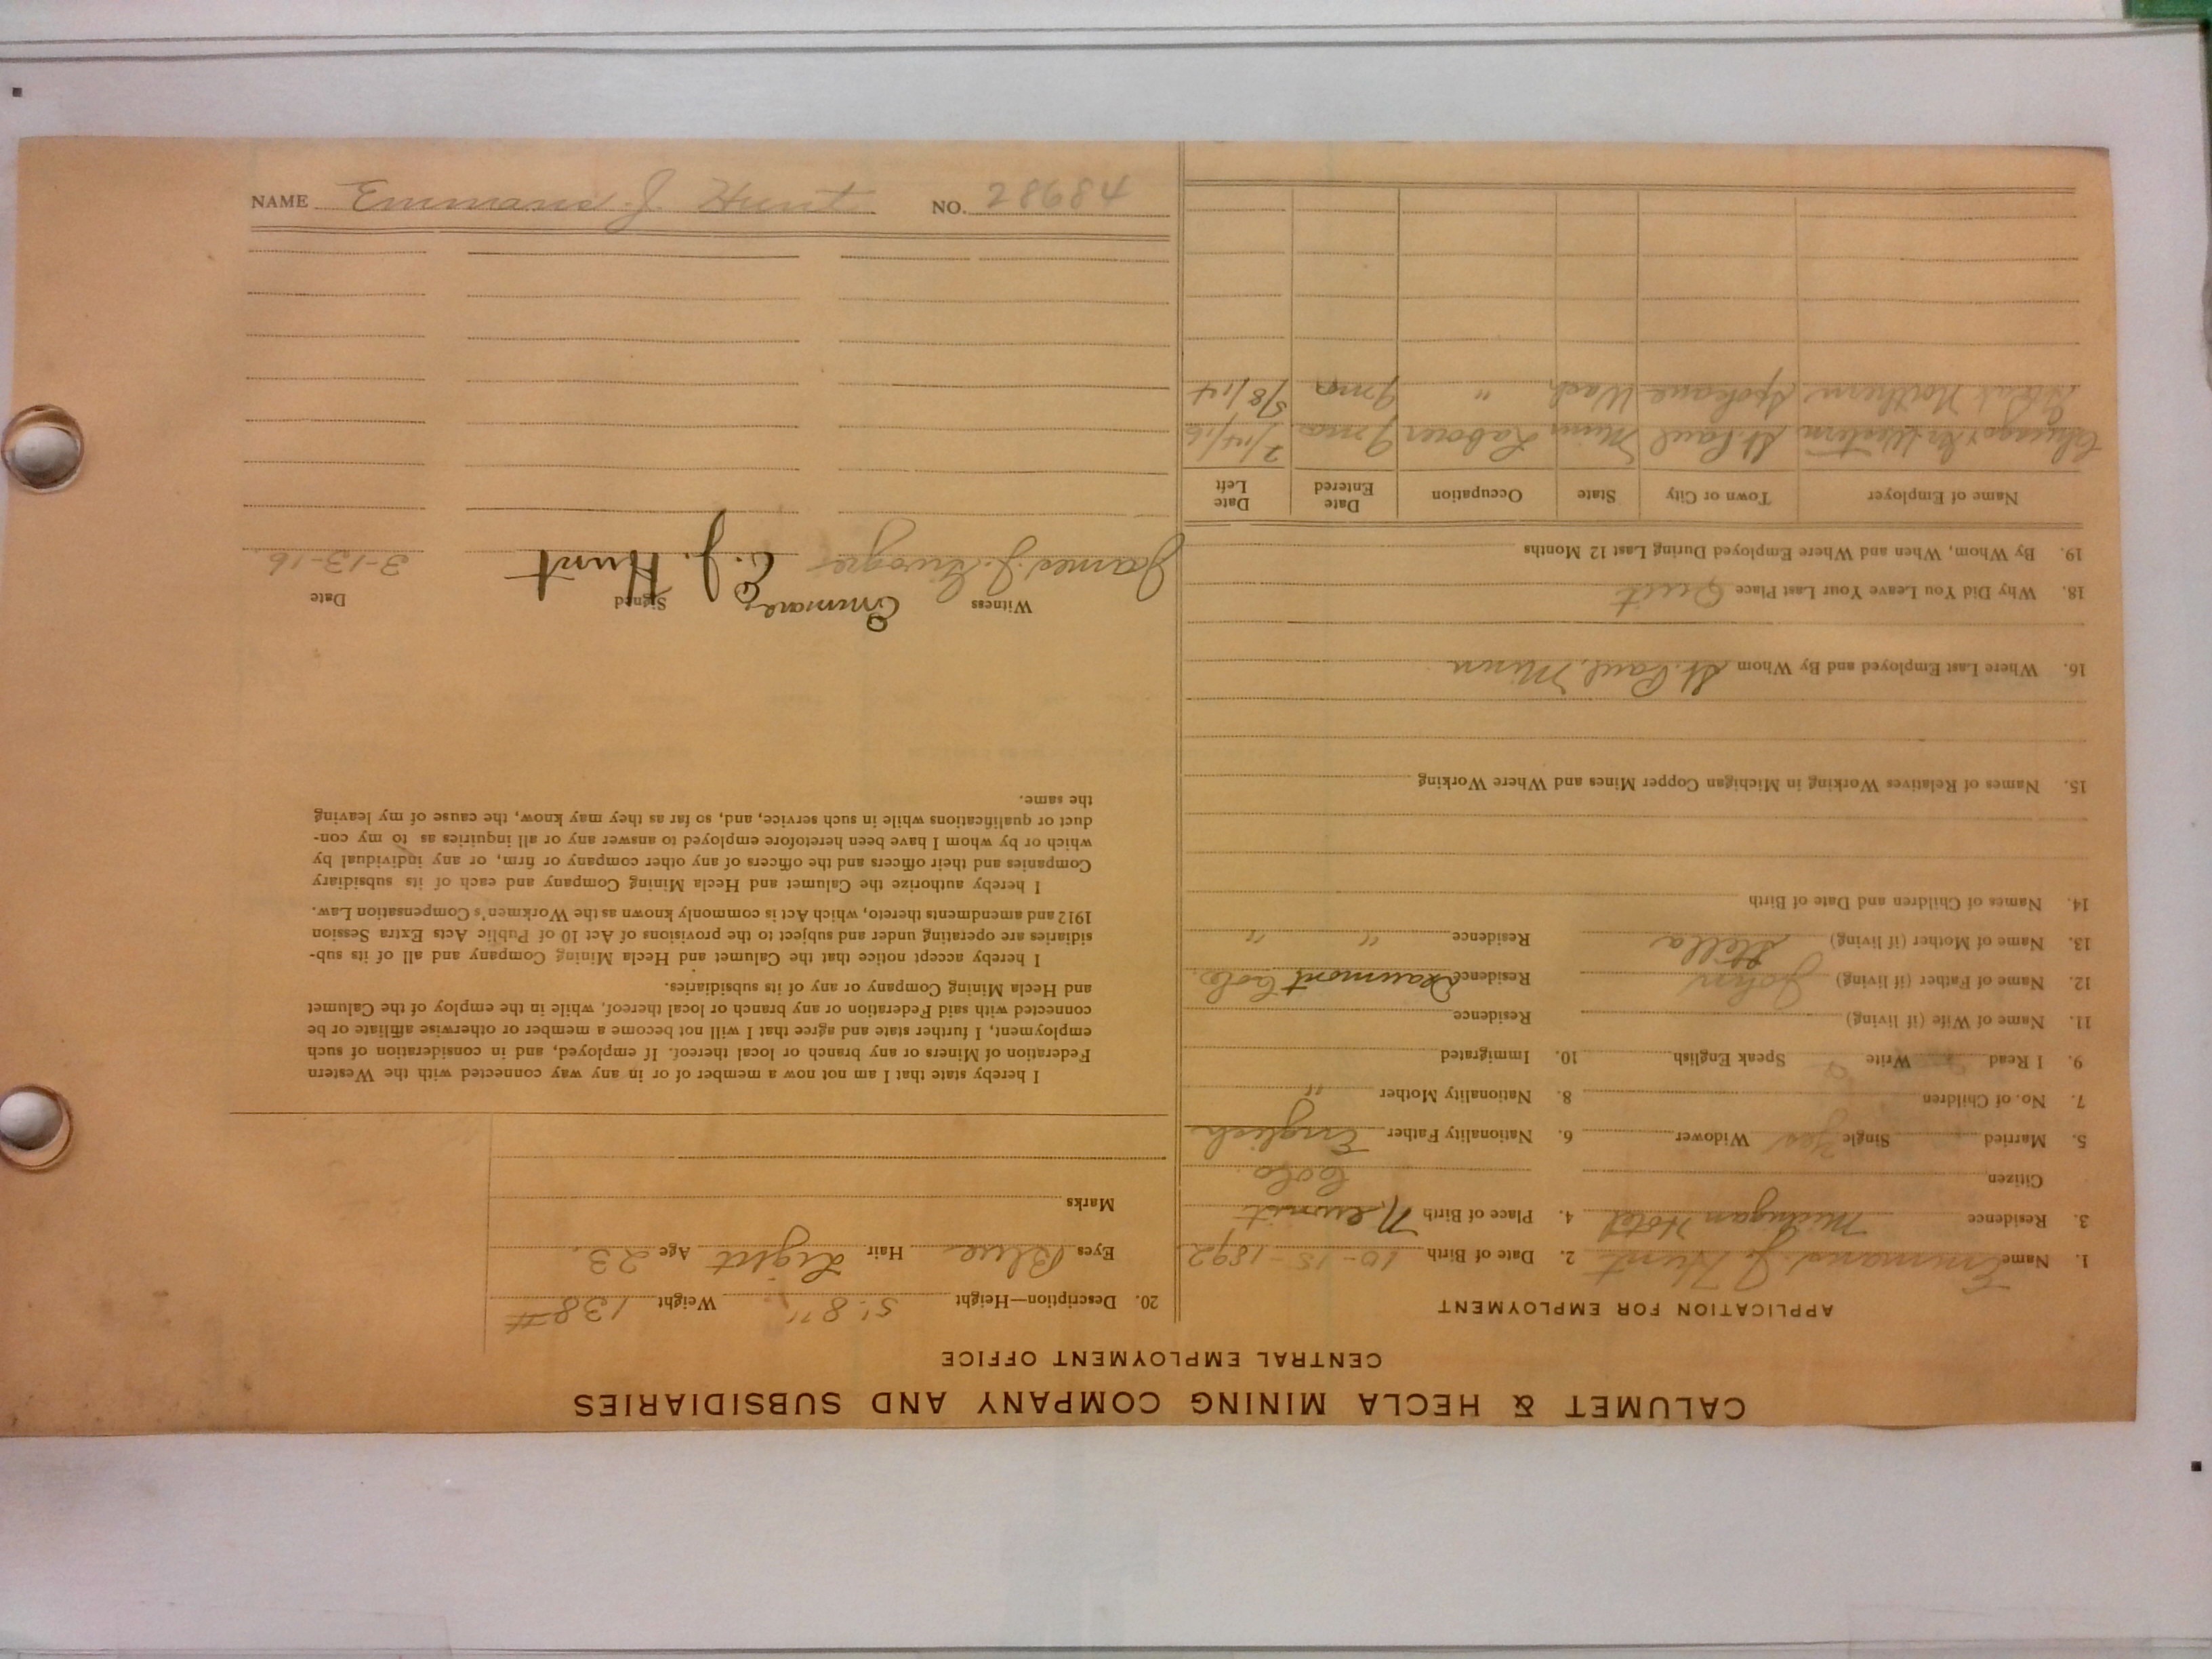 CALUMET & HECLA MINING COMPANY AND SUBSIDIARIES
CENTRAL EMPLOYMENT OFFICE
APPLICATION FOR EMPLOYMENT
1. Name J. Hunt 2. Date of Birth 10-15-1892
3. Residence Michigan Hotel 4. Place of Birth
Citizen Colo.
5. Married Single Yes Widower 6. Nationality Father English
7. No. of Children 8. Nationality Mother "
9. I Read Write Speak English 10. Immigrated
11. Name of Wife (if living) Residence
12. Name of Father (if living) John Residence Colo.
13. Name of Mother (if living) Stella Residence " "
14. Names of Children and Date of Birth
15. Names of Relatives Working in Michigan Copper Mines and Where Working
16. Where Last Employed and By Whom St. Paul, Minn
18. Why Did You Leave Your Last Place Quit
19. By Whom, When and Where Employed During Last 12 Months
Name of Employer Town or City State Occupation Date Entered Date Left
Chicago Western St. Paul Minn Laborer 2/14/16
Northern Spokane Wash " 5/8/14
20. Description—Height 5'.8" Weight 138#
Eyes Blue Hair Light Age 23.
Marks
I hereby state that I am not now a member of or in any way connected with the Western
Federation of Miners or any branch or local thereof. If employed, and in consideration of such
employment, I further state and agree that I will not become a member or otherwise affiliate or be
connected with said Federation or any branch or local thereof, while in the employ of the Calumet
and Hecla Mining Company or any of its subsidiaries.
I hereby accept notice that the Calumet and Hecla Mining Company and all of its sub-
sidiaries are operating under and subject to the provisions of Act 10 of Public Acts Extra Session
1912 and amendments thereto, which Act is commonly known as the Workmen's Compensation Law.
I hereby authorize the Calumet and Hecla Mining Company and each of its subsidiary
Companies and their officers and the officers of any other company or firm, or any individual by
which or by whom I have been heretofore employed to answer any or all inquiries as to my con-
duct or qualifications while in such service, and, so far as they may know, the cause of my leaving
the same.
Witness Signed Date
James J. E. J. Hunt 3-13-16
NAME J. Hunt NO. 28684